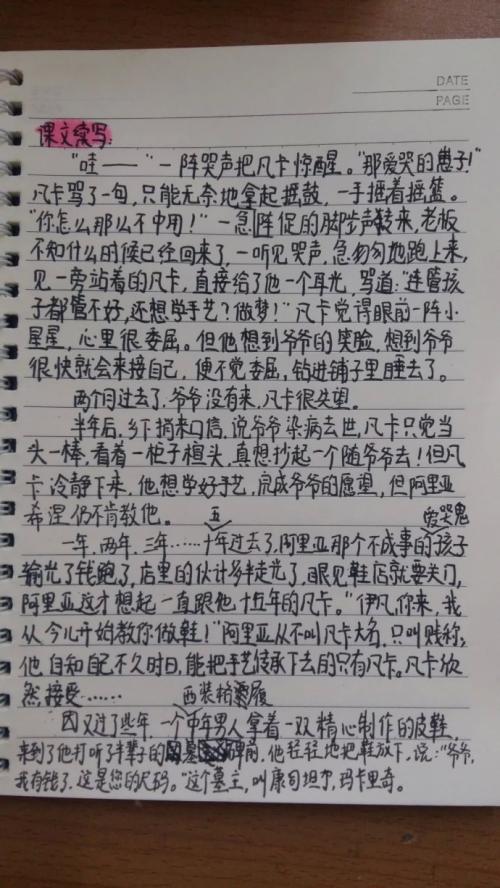 DATE
PAGE
课文续写:
"哇——"一阵哭声把凡卡惊醒。"那爱哭的崽子!"
凡卡骂了一句,只能无奈地拿起摇鼓,一手摇着摇篮。
"你怎么那么不中用!"一急阵促的脚步声转来,老板
不知什么时候已经回来了,一听见哭声,急匆匆地跑上来,
见一旁站着的凡卡,直接给了他一个耳光,骂道:"连管孩
子都管不好,还想学手艺?做梦!"凡卡觉得眼前一阵小
星星,心里很委屈。但他想到爷爷的笑脸,想到爷爷
很快就会来接自己,便不觉委屈,钻进铺子里睡去了。
两个月过去了,爷爷没有来,凡卡很失望。
半年后,乡下捎来口信,说爷爷染病去世,凡卡只觉当
头一棒,看着一柜子楦头,真想抄起一个随爷爷去!但凡
卡冷静下来,他想学好手艺,完成爷爷的愿望,但阿里亚
希涅仍不肯教他。
五
爱哭鬼
一年,两年,三年……十年过去了,阿里亚那个不成事的孩子
输光了钱跑了,店里的伙计多半走光了,眼见鞋店就要关门,
阿里亚这才想起一直跟他十五年的凡卡。"伊凡,你来,我
从今儿开始教你做鞋!"阿里亚从不叫凡卡大名,只叫贱称,
他自知自己不久时日,能把手艺传承下去的只有凡卡。凡卡欣
然接受……
西装格履
又过了些年,一个中年男人拿着一双精心制作的皮鞋,
来到了他打听了半辈子的碑前,他轻轻地把鞋放下,说:"爷爷,
我有钱了,这是您的尺码。"这个墓主,叫康司坦尔,玛卡里奇。